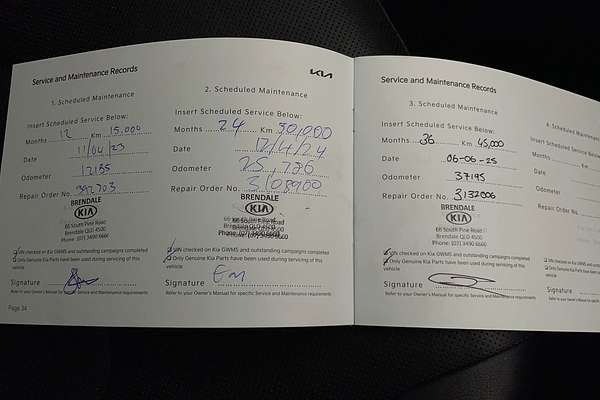 Service and Maintenance Records
KIA
1. Scheduled Maintenance
Insert Scheduled Service Below:
Months 12 Km 15,000
Date 11/04/23
Odometer 12135
Repair Order No. 392703
BRENDALE
KIA
66 South Pine Road
Brendale QLD 4500
Phone: (07) 3490 6660
VIN checked on Kia GWMS and outstanding campaigns completed
Only Genuine Kia Parts have been used during servicing of this
vehicle
Signature
Refer to your Owner's Manual for specific Service and Maintenance requirements
Page 34
2. Scheduled Maintenance
Insert Scheduled Service Below:
Months 24 Km 30,000
Date 12/4/24
Odometer 25,786
Repair Order No. 3108900
BRENDALE
KIA
66 South Pine Road
Brendale QLD 4500
Phone: (07) 3490 6660
VIN checked on Kia GWMS and outstanding campaigns completed
Only Genuine Kia Parts have been used during servicing of this
vehicle
Signature
Refer to your Owner's Manual for specific Service and Maintenance requirements
Service and Maintenance Records
3. Scheduled Maintenance
Insert Scheduled Service Below:
Months 36 Km 45,000
Date 06-06-25
Odometer 37195
Repair Order No. 3132006
BRENDALE
KIA
66 South Pine Road
Brendale QLD 4500
Phone: (07) 3490 6660
VIN checked on Kia GWMS and outstanding campaigns completed
Only Genuine Kia Parts have been used during servicing of this
vehicle
Signature
Refer to your Owner's Manual for specific Service and Maintenance requirements
4. Scheduled
Insert Scheduled Service
Months
Date
Odometer
Repair Order No.
VIN checked on Kia GWMS and
Only Genuine Kia Parts have
vehicle
Signature
Refer to your Owner's Manual for